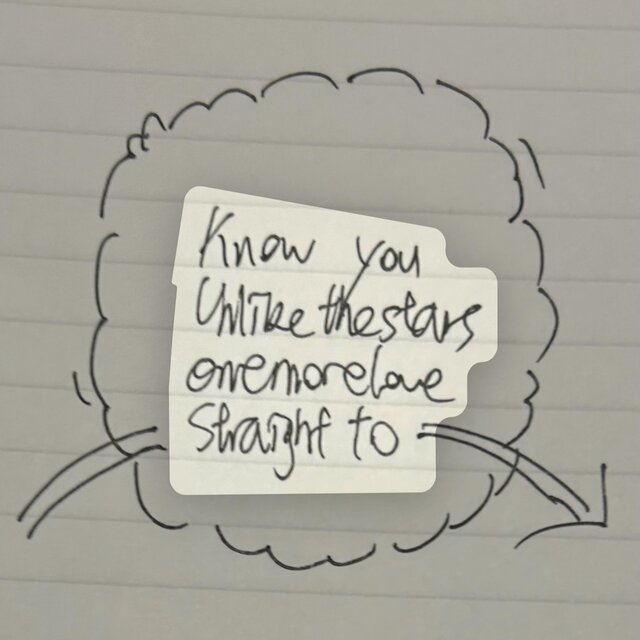 Know you
Unlike the stars
one more love
Straight to